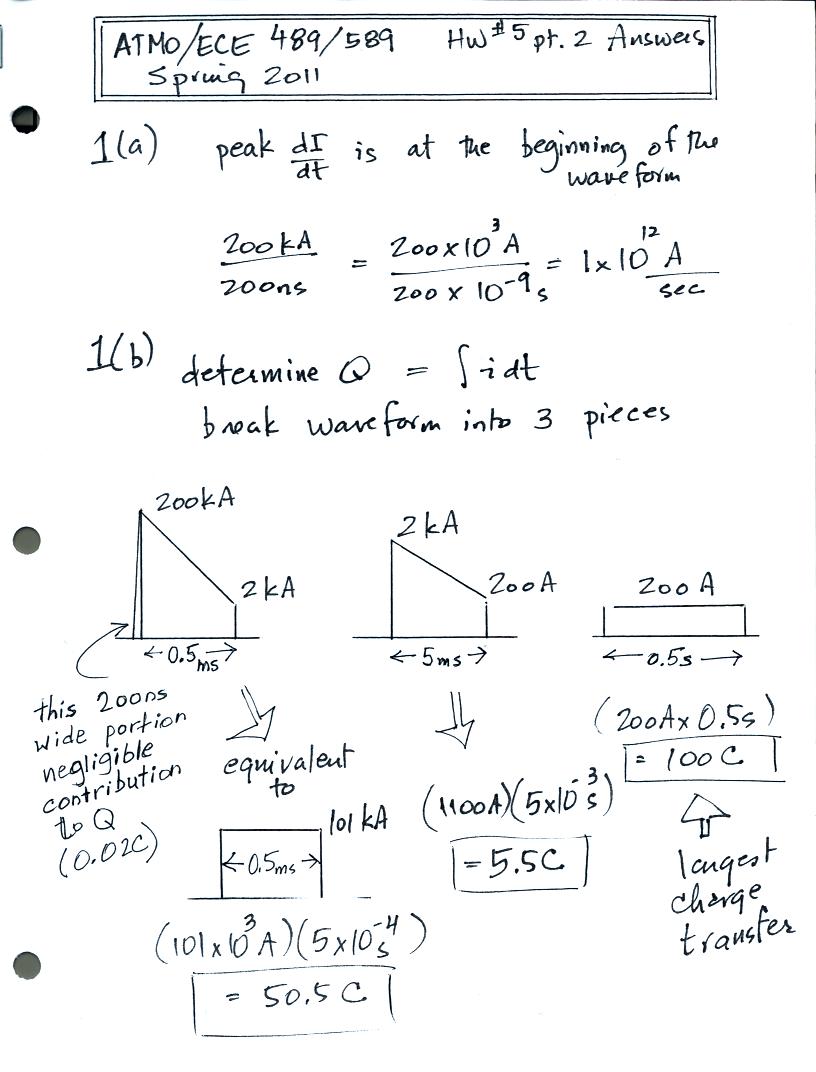 ATMO/ECE 489/589 HW #5 pt. 2 Answers
Spring 2011
1(a) peak dI/dt is at the beginning of the
waveform
200kA/200ns = 200x10^3 A/200 x 10^-9 s = 1x10^12 A/sec
1(b) determine Q = ∫ i dt
break waveform into 3 pieces
200kA
2 kA
← 0.5 ms →
2 kA
200A
← 5ms →
200 A
← 0.5s →
this 200ns
wide portion
negligible
contribution
to Q
(0.02C)
equivalent
to
101 kA
← 0.5ms →
(101x10^3 A)(5x10^-4 s)
= 50.5 C
(1100A)(5x10^-3 s)
= 5.5C
(200A x 0.5s)
= 100 C
largest
charge
transfer